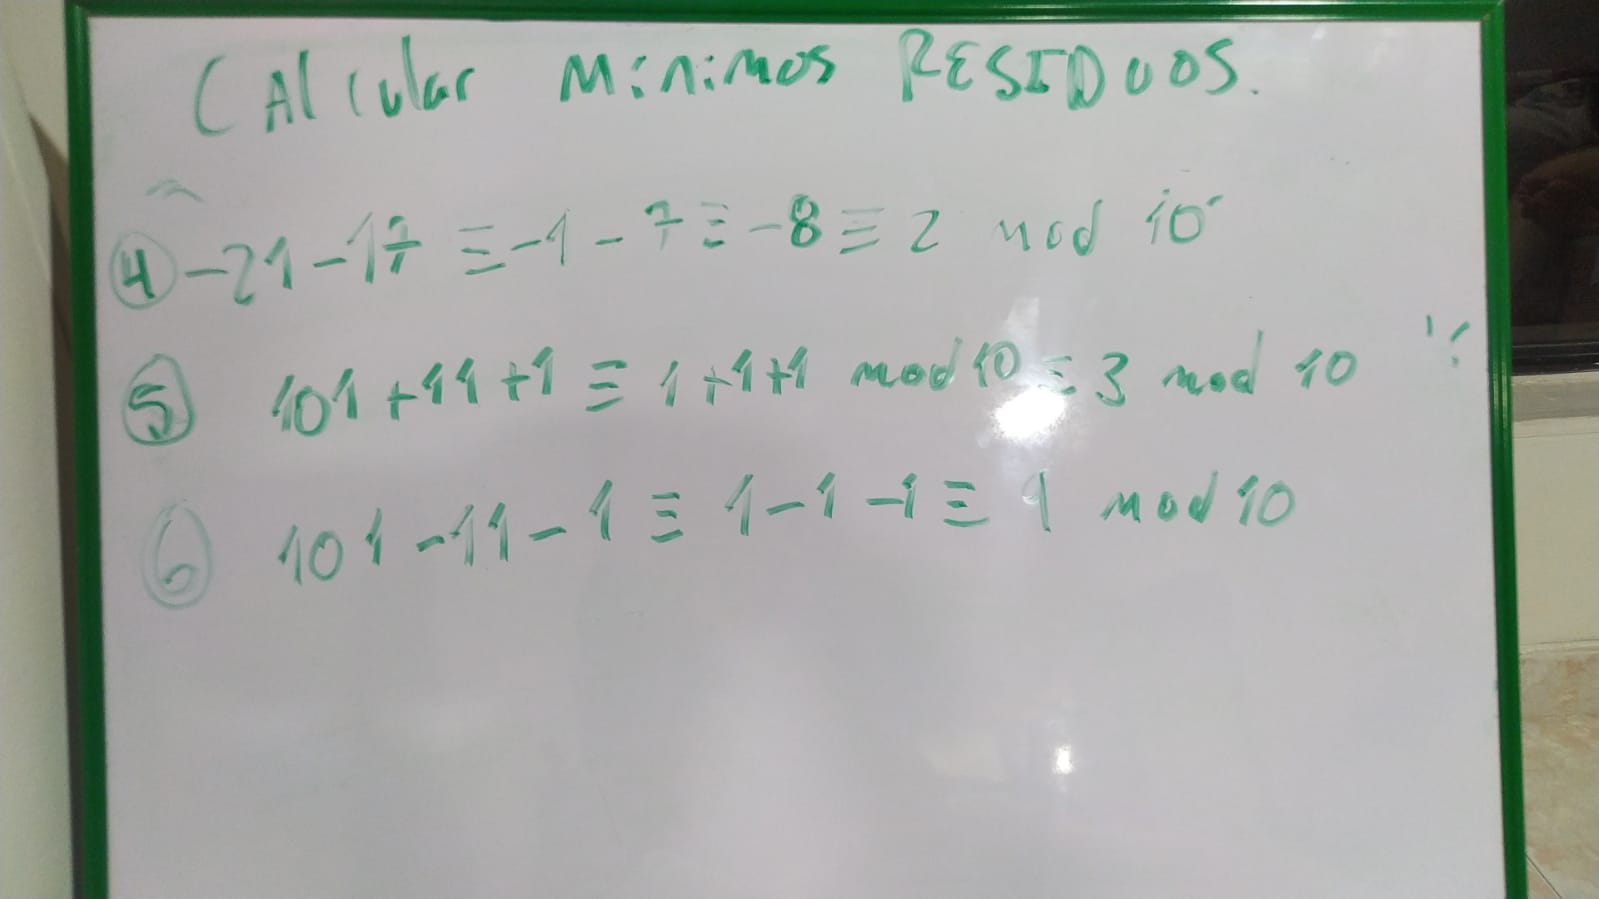 CAlcular MíNiMos RESIDUOS.
④ -21-17 ≡ -1-7 ≡ -8 ≡ 2 mod 10
⑤ 101+11+1 ≡ 1+1+1 mod 10 ≡ 3 mod 10
⑥ 101-11-1 ≡ 1-1-1 ≡ 9 mod 10